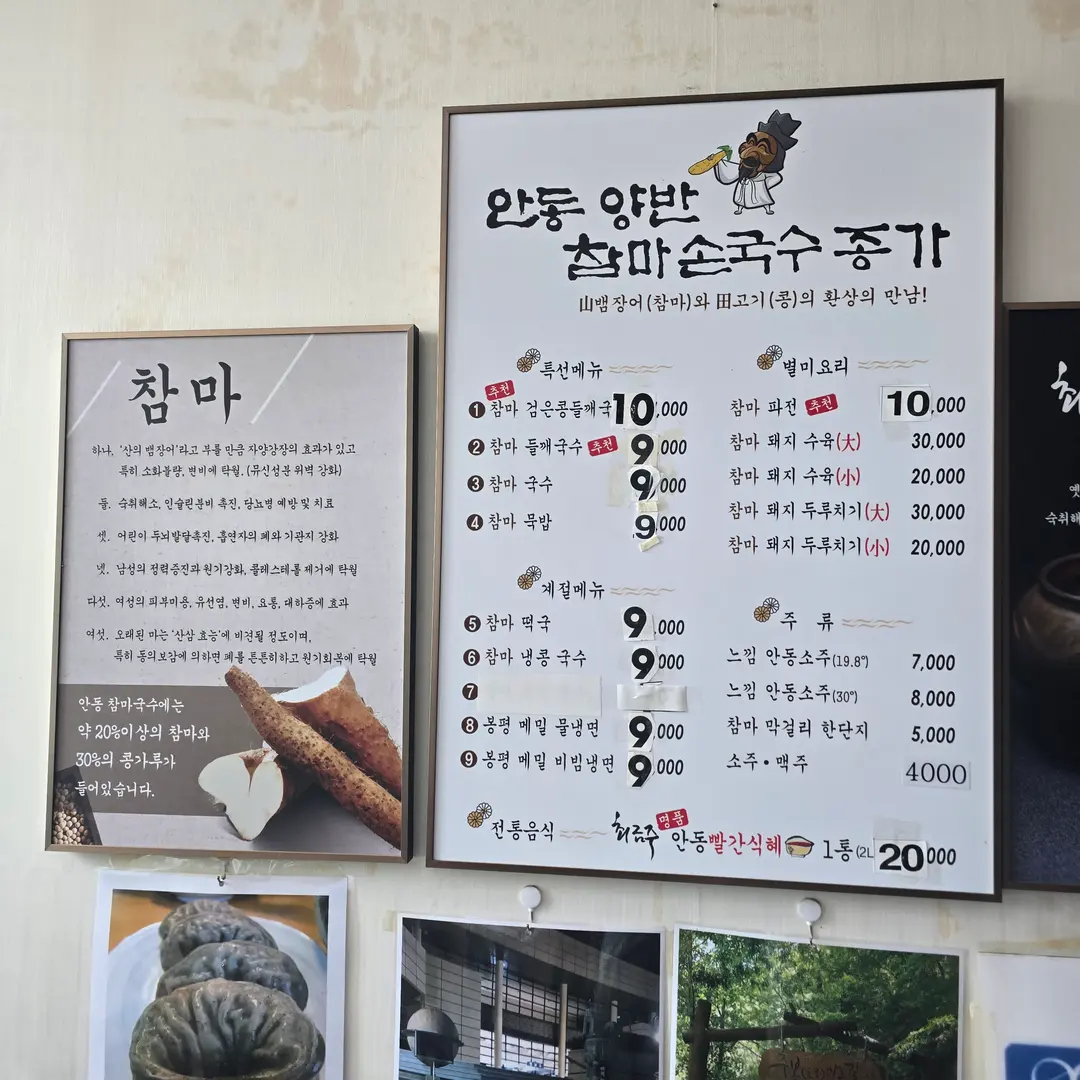 참마
하나. '산의 뱀장어'라고 부를 만큼 자양강장의 효과가 있고
특히 소화불량, 변비에 탁월. (뮤신성분 위벽 강화)
둘. 숙취해소, 인슐린분비 촉진, 당뇨병 예방 및 치료
셋. 어린이 두뇌발달촉진, 흡연자의 폐와 기관지 강화
넷. 남성의 정력증진과 원기강화, 콜레스테롤 제거에 탁월
다섯. 여성의 피부미용, 유선염, 변비, 요통, 대하증에 효과
여섯. 오래된 마는 '산삼 효능'에 비견될 정도이며,
특히 동의보감에 의하면 폐를 튼튼히하고 원기회복에 탁월
안동 참마국수에는
약 20%이상의 참마와
30%의 콩가루가
들어있습니다.
안동 양반
참마손국수 종가
山뱀장어(참마)와 田고기(콩)의 환상의 만남!
특선메뉴
추천
1 참마 검은콩들깨국 10,000
2 참마 들깨국수 추천 9,000
3 참마 국수 9,000
4 참마 묵밥 9,000
계절메뉴
5 참마 떡국 9,000
6 참마 냉콩 국수 9,000
7
8 봉평 메밀 물냉면 9,000
9 봉평 메밀 비빔냉면 9,000
별미요리
참마 파전 추천 10,000
참마 돼지 수육(大) 30,000
참마 돼지 수육(小) 20,000
참마 돼지 두루치기(大) 30,000
참마 돼지 두루치기(小) 20,000
주 류
느낌 안동소주(19.8°) 7,000
느낌 안동소주(30°) 8,000
참마 막걸리 한단지 5,000
소주·맥주 4000
전통음식 최금주 명품 안동빨간식혜 1통(2L 20,000
숙취해